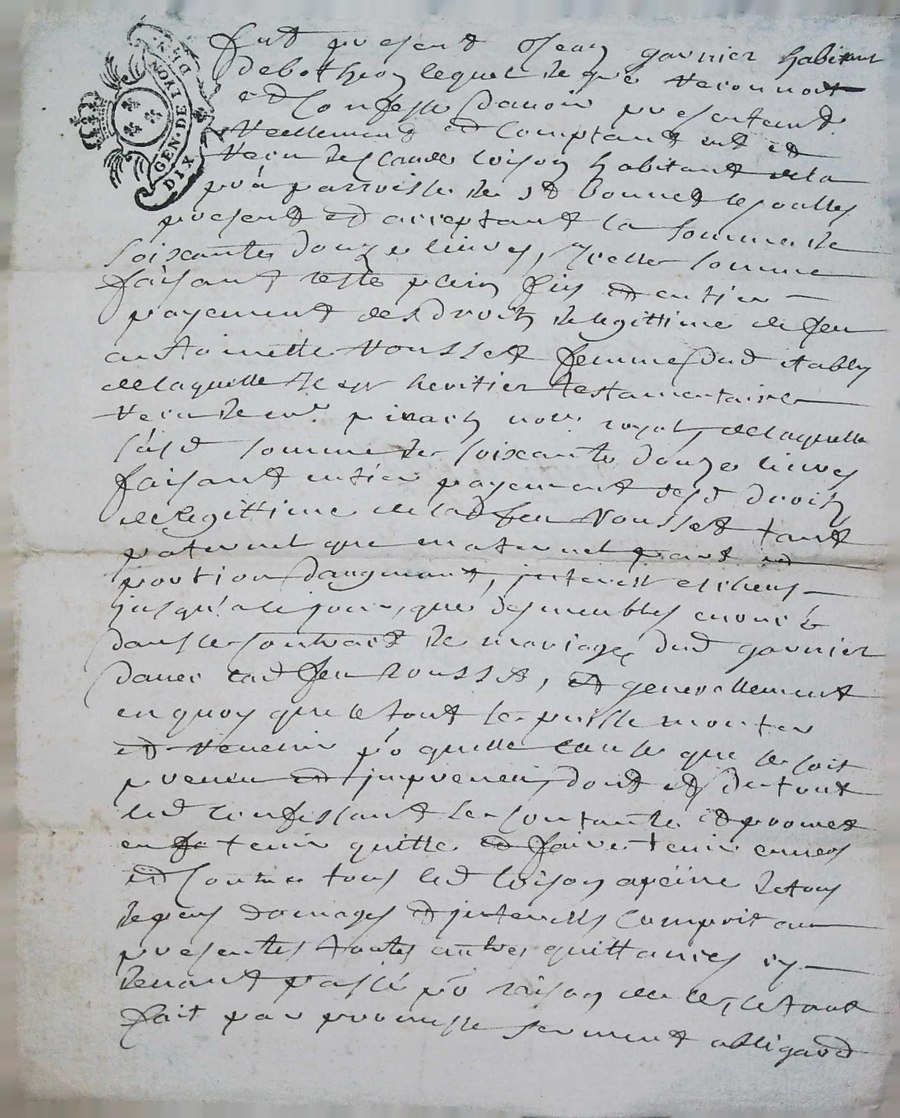 GEN. DIE
DIX
fut present Jean garnier habitant
de lequel de gré reconnoit
et Confesse davoir presentement
reellement et Comptant eut et
receu de Claude loison habitant de la
parroisse de st bonnet les oulles
present et acceptant la somme de
soixante douze livres, Icelle somme
faisant reste fin et entier
payement des droits de legittime de feu
antoinette Rousset femme dud etably
de laquelle il est heritier testamentaire
receu de mr not. royal, de laquelle
lad somme de soixante douze livres
faisant entier payement desd droits
de legittime de lad feu Rousset tant
paternel que maternel part et
portion daugment, interest
jusqu'a ce jour, que des meubles
dans le Contract de mariage dud garnier
davec lad feu rousset, et generallement
en quoy que le tout se puisse monter
et revenir po quelle cause que se soit
preveu et impreveu, dont et du tout
led Confessant se contante et promet
en tenir quitte et faire tenir envers
et Contre tous led loison a peine de tous
depens domages et interests Comprit aux
presentes toutes autres quittances cy
devant passé po raison de ce, le tout
fait par promesse serment obligaon